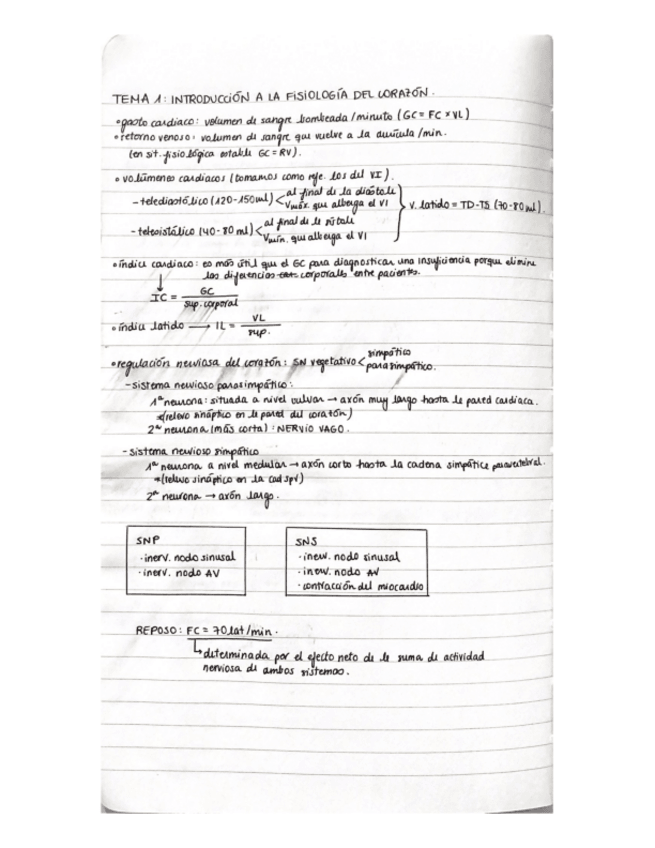 TEMA 1: INTRODUCCIÓN A LA FISIOLOGÍA DEL CORAZÓN.
• gasto cardiaco: volumen de sangre bombeada/minuto (GC = FC x VL)
• retorno venoso: volumen de sangre que vuelve a la aurícula/min.
(en sit. fisiológica estable GC = RV).
• volúmenes cardiacos (tomamos como refe. los del VI).
- telediastólico (120-150ml) < al final de la diástole
Vmáx. que alberga el VI
- telesistólico (40-80 ml) < al final de la sístole
Vmín. que alberga el VI
} v. latido = TD-TS (70-80 ml).
• índice cardiaco: es más útil que el GC para diagnosticar una insuficiencia porque elimina
las diferencias corporales entre pacientes.
↓
IC = GC
sup. corporal
• índice latido → IL = VL
sup.
• regulación nerviosa del corazón: SN vegetativo < simpático
parasimpático.
- sistema nervioso parasimpático:
1ª neurona: situada a nivel bulbar → axón muy largo hasta la pared cardiaca.
*(relevo sináptico en la pared del corazón)
2ª neurona (más corta): NERVIO VAGO.
- sistema nervioso simpático
1ª neurona a nivel medular → axón corto hasta la cadena simpática paravertebral.
*(relevo sináptico en la cad spv)
2ª neurona → axón largo.
SNP
· inerv. nodo sinusal
· inerv. nodo AV
SNS
· inerv. nodo sinusal
· inerv. nodo AV
· contracción del miocardio
REPOSO: FC = 70 lat/min.
↳ determinada por el efecto neto de la suma de actividad
nerviosa de ambos sistemas.